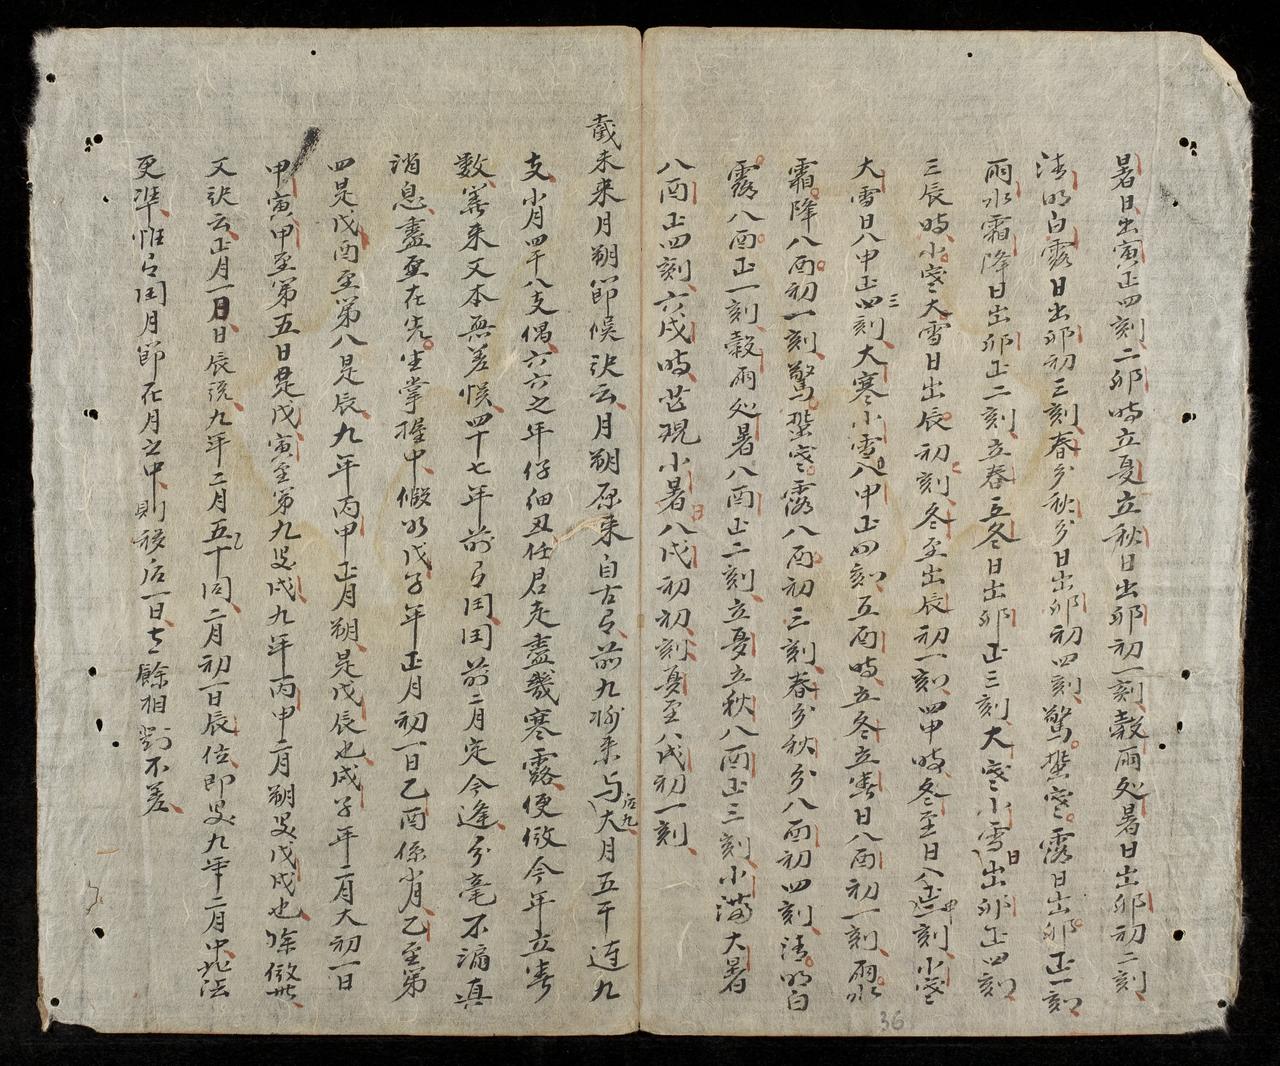 暑日出寅正四刻二卯時立夏立秋日出卯初一刻穀雨処暑日出卯初二刻
清明白露日出卯初三刻春分秋分日出卯初四刻驚蟄寒露日出卯正一刻
雨水霜降日出卯正二刻立春立冬日出卯正三刻大寒小雪日出卯正四刻
三辰時小寒大雪日出辰初刻冬至出辰初一刻四申時冬至日入申正二刻小寒
大雪日入申正四刻三大寒小雪入申正四刻五酉時立冬立春日入酉初一刻雨水
霜降入酉初一刻驚蟄寒露入酉初三刻春分秋分入酉初四刻清明白
露入酉正一刻穀雨処暑入酉正二刻立夏立秋入酉正三刻小滿大暑
入酉正四刻六戌時芒現小暑日入戌初初刻夏至入戌初一刻
歲未來月朔節候訣云月朔原來自古有前九將來与后九大月五干連九
支小月四干八支偶六六之年仔細丑任君走盡幾寒露便倣今年立春
數筭來又本無差悮四十七年前有閏閏前二月定今逢分毫不漏真
消息盡在先生掌握中假如戊子年正月初一日乙酉係肖月乙至第
四是戊酉至第八是辰九年丙申正月朔是戊辰也戊子年二月大初一日
甲寅甲至第五日是戊寅至第九是戌九年丙申二月朔是戊戌也餘倣此
又訣云正月一日日辰統九年二月五十同二月初一日辰位即是九年二月中此法
更準惟有閏月節在月之中則移后一日吉餘相對不差